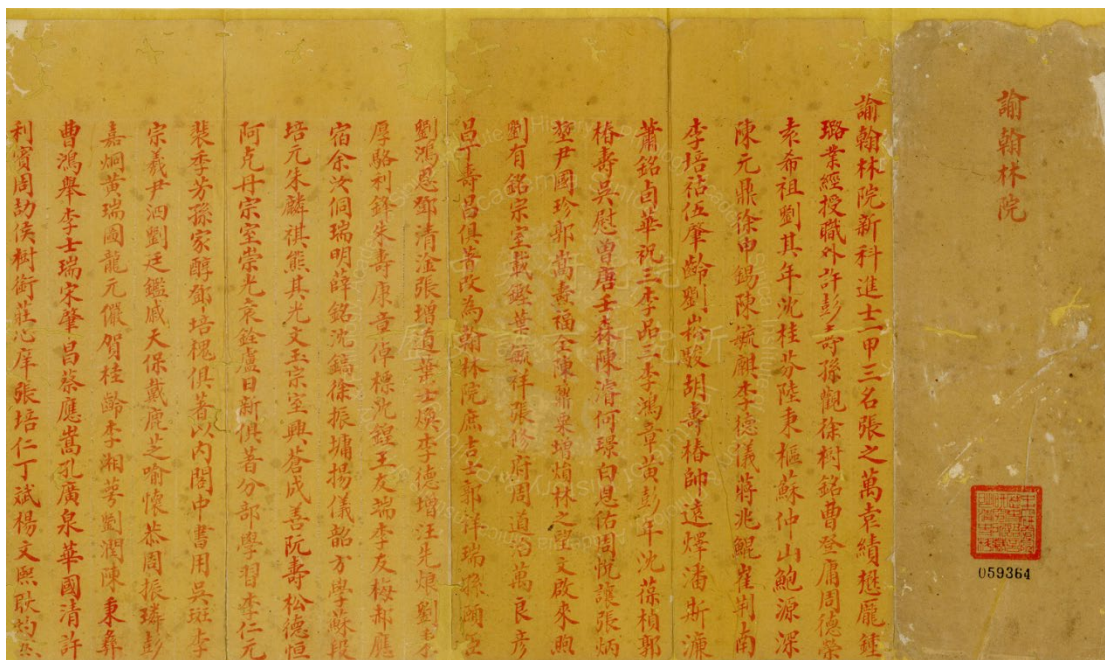 諭翰林院
059364
諭翰林院新科進士一甲三名張之萬袁績懋龐鍾
璐業經授職外許彭壽孫觀徐樹銘曹登庸周德榮
袁希祖劉其年沈桂芬陸秉樞蘇仲山鮑源深
陳元鼎徐申錫陳毓麒李德儀蔣兆鯤崔荆南
李培祜伍肇齡劉崧駿胡壽椿帥遠燡潘斯濂
蕭銘卣華祝三李品三李鴻章黃彭年沈葆楨郭
椿壽吳慰曾唐壬森陳濬何璟白恩佑周悅讓張炳
堃尹國珍郭嵩燾福全陳鼐朱增炳林之望文啟來煦
劉有銘宗室載鏗葉毓祥張修府周道治萬良彥
昌丁壽昌俱著改為翰林院庶吉士郭祥瑞孫頤臣
劉鴻恩鄧清淦張增道葉士煥李德增汪先煉劉
厚駱利鋒朱壽康童倬標沈鍠王友端李友梅郝應
宿余汝侗瑞明薛銘沈鎬徐振墉揚儀韶方學蘇段
培元朱麟祺熊其光文玉宗室興蒼成善阮壽松德恒
阿克丹宗室崇光袁銓盧日新俱著分部學習李仁元
裴季芳孫家醇鄧培槐俱著以內閣中書用吳珽李
宗羲尹泗劉廷鑑戚天保戴鹿芝喻懷恭周振璘彭
嘉炯黃瑞圖龍元儼賀桂齡李湘棻劉潤陳秉彝
曹鴻舉李士瑞宋肇昌蔡應嵩孔廣泉華國清許
利賓周劼侯樹銜莊心庠張培仁丁斌楊文熙耿灼然